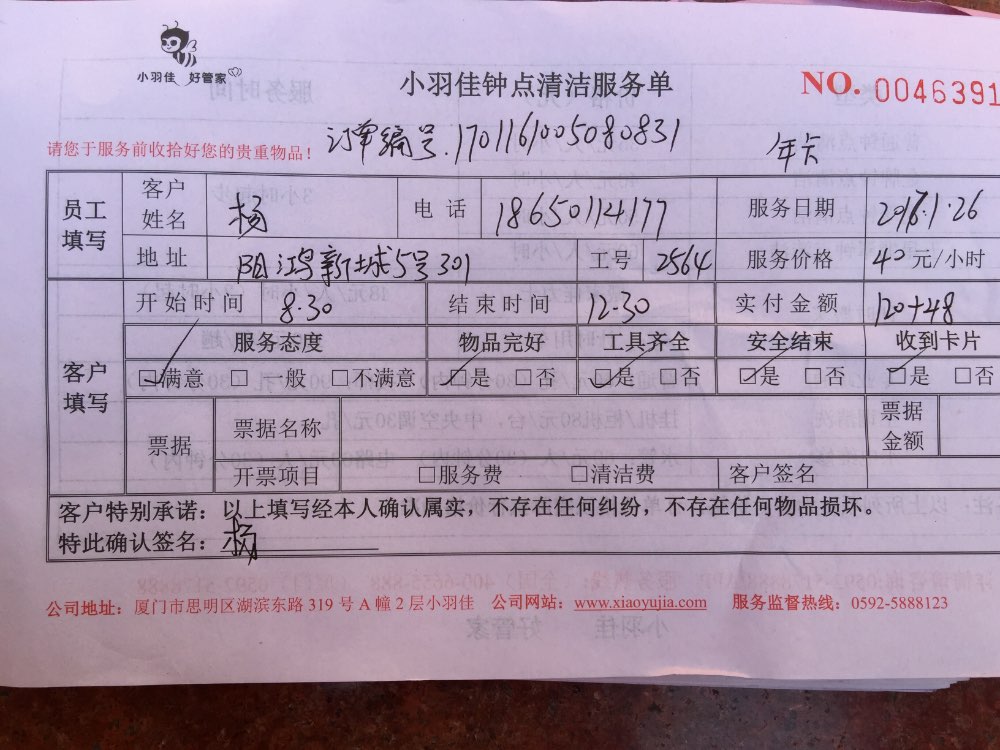 小羽佳 好管家
小羽佳钟点清洁服务单
NO. 0046391
请您于服务前收拾好您的贵重物品！
订单编号.1701161005080831
年卡
员工填写 客户姓名 杨 电话 18650114177 服务日期 2016.1.26
地址 阳鸿新城5号301 工号 2564 服务价格 40元/小时
客户填写 开始时间 8.30 结束时间 12.30 实付金额 120+48
服务态度 物品完好 工具齐全 安全结束 收到卡片
☑满意 □一般 □不满意 ☑是 □否 ☑是 □否 ☑是 □否 ☑是 □否
票据 票据名称 票据金额
开票项目 □服务费 □清洁费 客户签名
客户特别承诺：以上填写经本人确认属实，不存在任何纠纷，不存在任何物品损坏。
特此确认签名：杨
公司地址：厦门市思明区湖滨东路 319 号 A 幢 2 层小羽佳 公司网站：www.xiaoyujia.com 服务监督热线：0592-5888123